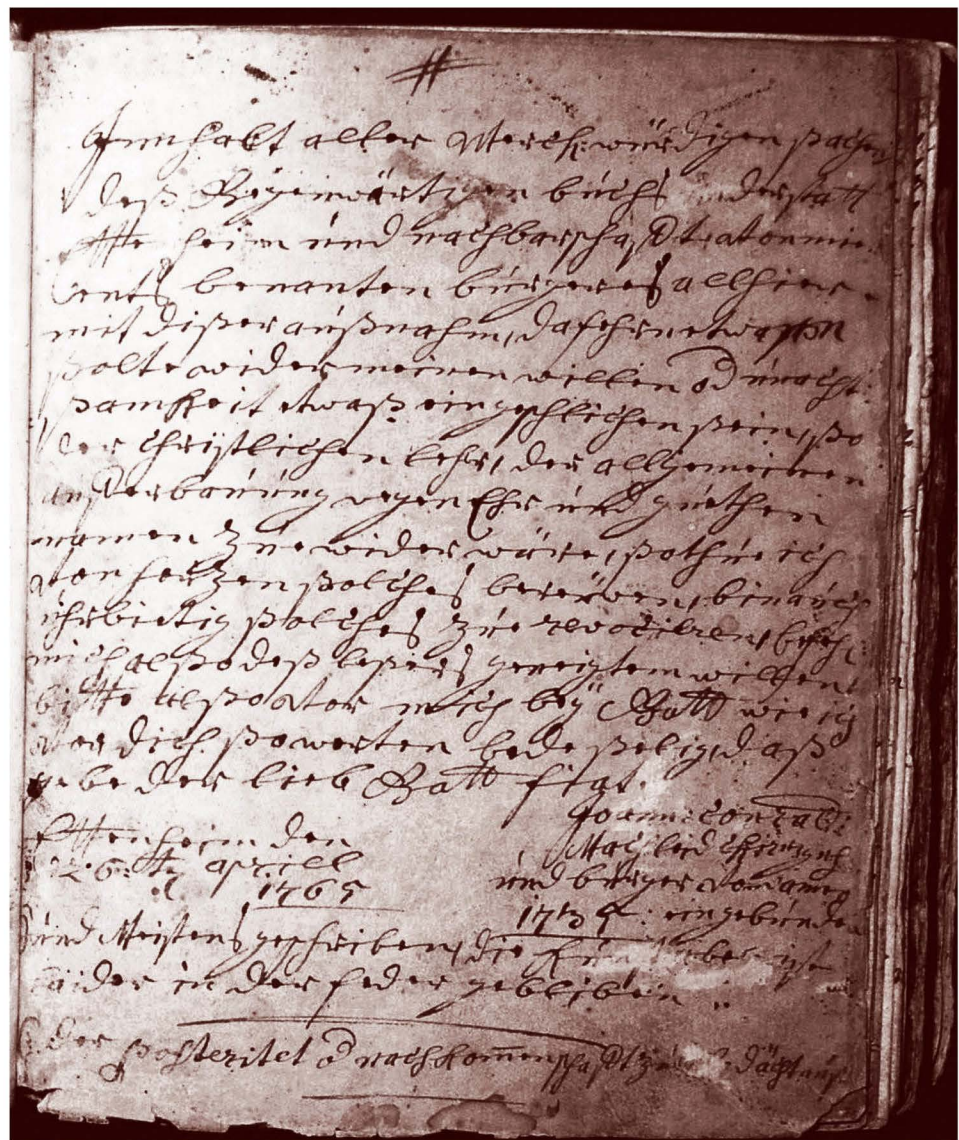 Innhalt aller Merckwürdigen sachen
deß Gegenwärtigen buchs in der statt
Ettenheim und nachbarschafft
benanten burgeres allhier
mit dißer außnahm, dafehrn etwaß
solte wider meinen willen od unacht
samkeit etwaß eingeschlichen sein, so
der christlichen lehr, der allgemeinen
aufferbauung wegen Ehr und guethen
namen zue wider wäre, so thue ich
von hertzen solches bereüwen, bin auch
ihrbietig solches zue revociren,
mich also deß lesers geneigtem willen
bitte also vor mich bey Gott wie ich
vor dich, so werten bede selig, daß
gebe der lieb Gott fiat.
Ettenheim den
26 ty aprill
1765
Joann: Conrad
Machleid
und burger
eingebunden
und Meistens geschriben, die
laider in der feder gebliben
der posteritet od nachkommenschafft zue